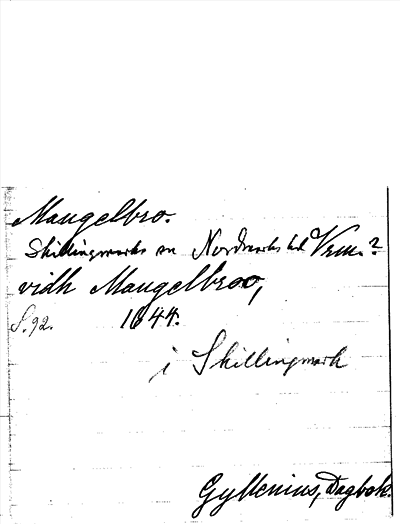 Mangelbro.
Skillingmarks sn Nordmarks hd Vrml.?
vidh Mangelbroo,
S. 92. 1644.
i Skillingmark
Gyllenius, Dagbok.